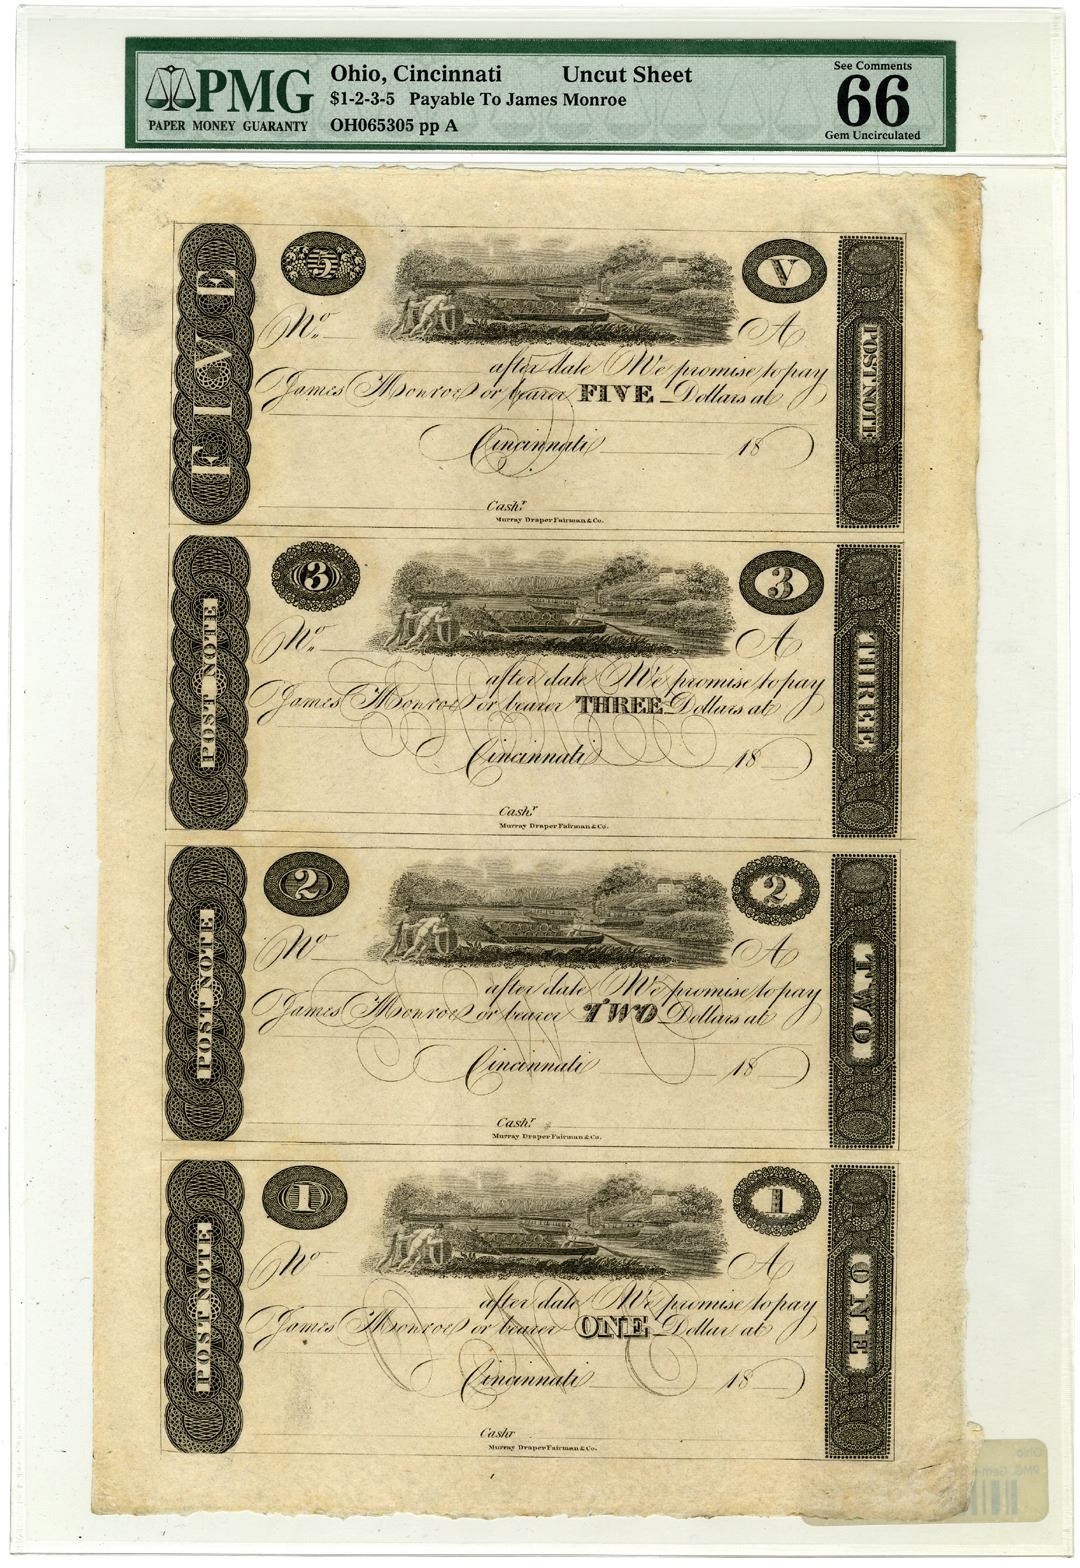 PMG
PAPER MONEY GUARANTY
Ohio, Cincinnati Uncut Sheet
$1-2-3-5 Payable To James Monroe
OH065305 pp A
See Comments
66
Gem Uncirculated
FIVE
5
V
POST NOTE
No. A
after date We promise to pay
James Monroe or bearer FIVE Dollars at
Cincinnati 18
Cashr
Murray Draper Fairman & Co.
POST NOTE
3
3
THREE
No. A
after date We promise to pay
James Monroe or bearer THREE Dollars at
Cincinnati 18
Cashr
Murray Draper Fairman & Co.
POST NOTE
2
2
TWO
No A
after date We promise to pay
James Monroe or bearer TWO Dollars at
Cincinnati 18
Cashr
Murray Draper Fairman & Co.
POST NOTE
1
1
ONE
No A
after date We promise to pay
James Monroe or bearer ONE Dollar at
Cincinnati 18
Cashr
Murray Draper Fairman & Co.
Ohio